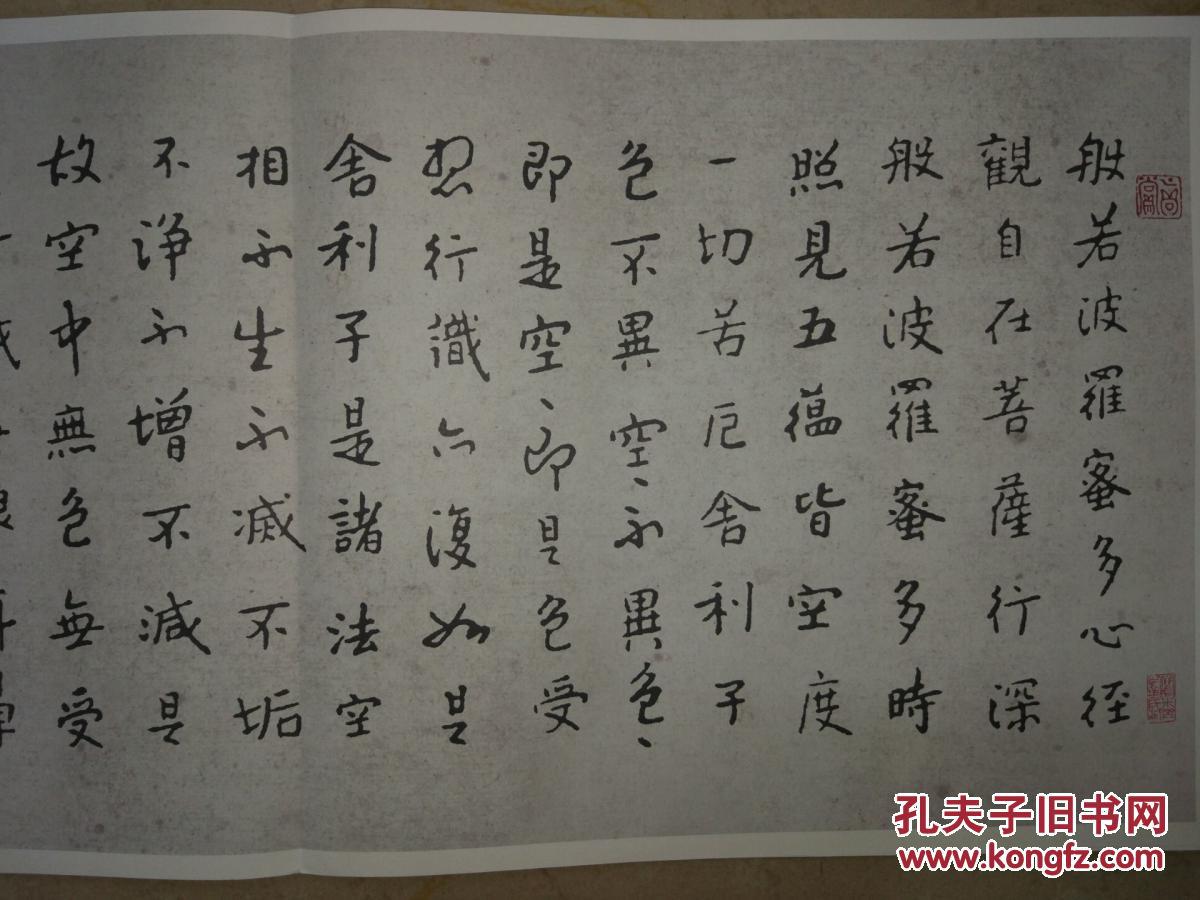 般若波羅蜜多心径
觀自在菩薩行深
般若波羅蜜多時
照見五蘊皆空度
一切苦厄舍利子
色不異空〻不異色〻
即是空〻即是色受
想行識亦復如是
舍利子是諸法空
相不生不滅不垢
不淨不增不減是
故空中無色無受
孔夫子旧书网
www.kongfz.com